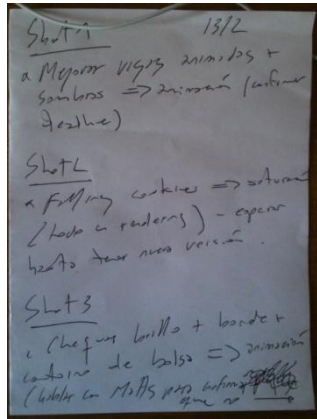 Shot 1 13/2
• Mejorar vigas animadas +
sombras => animación (confirmar
deadline)
Shot 2
• Falling cookies => saturación
(todo en rendering) - esperar
hasta tener nueva versión.
Shot 3
• Chequear brillo + borde +
contorno de bolsa => animación
(hablar con para confirmar
que no